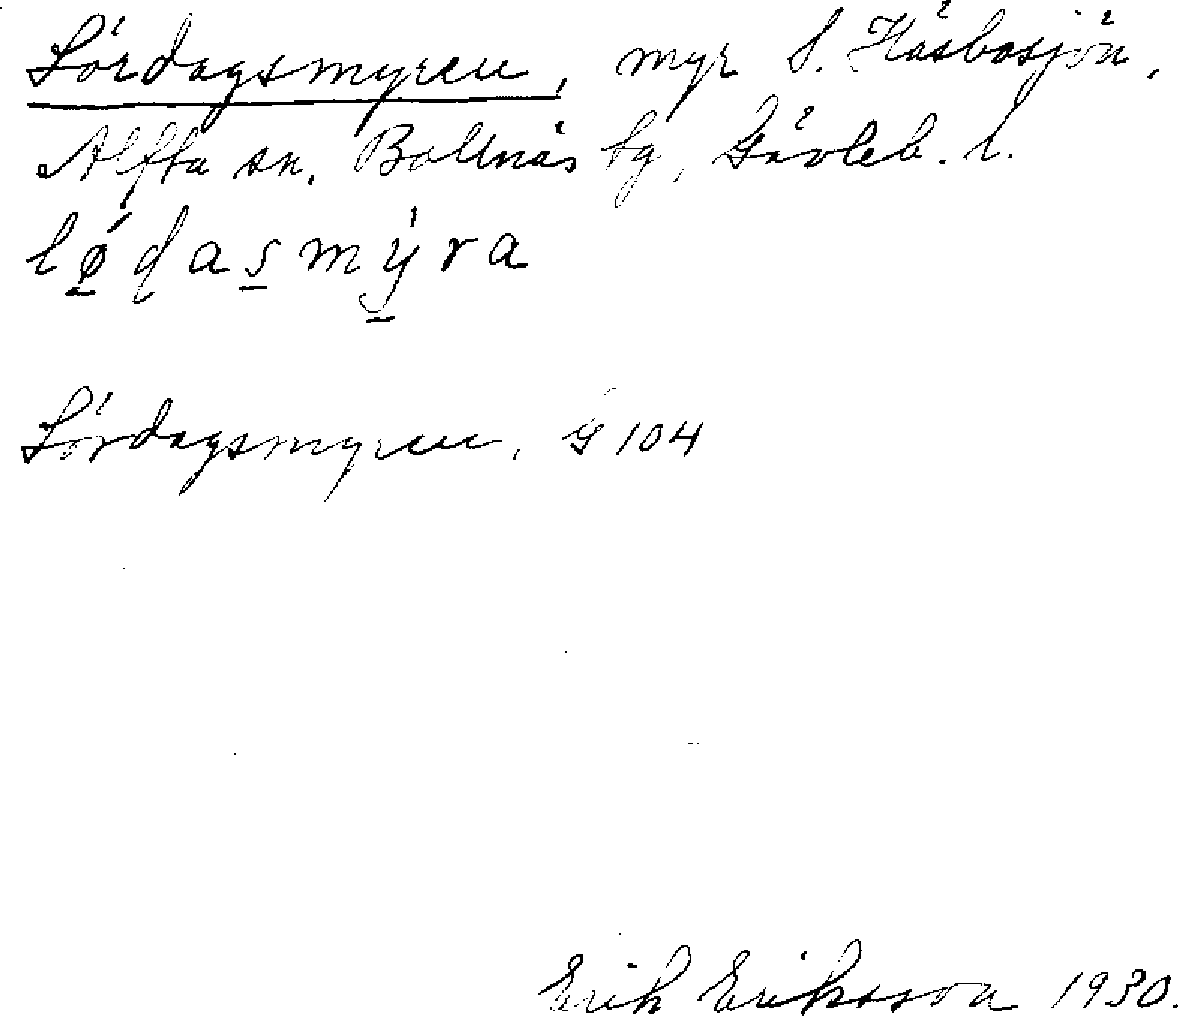 Lördagsmyren, myr S. Håsbosjön,
Alfta sn, Bollnäs tg, Gävleb. l.
lǿ̱ɖas̱mý̱ra
Lördagsmyren, G 104
Erik Eriksson 1930.